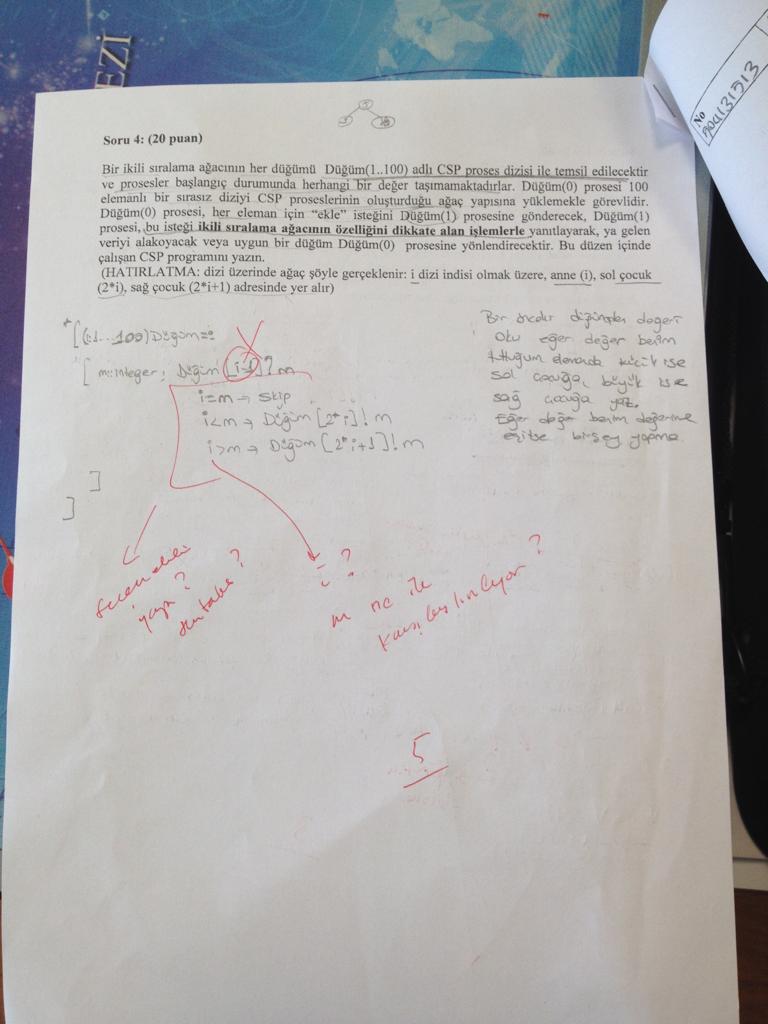 EZİ
No
Soru 4: (20 puan)
Bir ikili sıralama ağacının her düğümü Düğüm(1..100) adlı CSP proses dizisi ile temsil edilecektir
ve prosesler başlangıç durumunda herhangi bir değer taşımamaktadırlar. Düğüm(0) prosesi 100
elemanlı bir sırasız diziyi CSP proseslerinin oluşturduğu ağaç yapısına yüklemekle görevlidir.
Düğüm(0) prosesi, her eleman için “ekle” isteğini Düğüm(1) prosesine gönderecek, Düğüm(1)
prosesi, bu isteği ikili sıralama ağacının özelliğini dikkate alan işlemlerle yanıtlayarak, ya gelen
veriyi alakoyacak veya uygun bir düğüm Düğüm(0) prosesine yönlendirecektir. Bu düzen içinde
çalışan CSP programını yazın.
(HATIRLATMA: dizi üzerinde ağaç şöyle gerçeklenir: i dizi indisi olmak üzere, anne (i), sol çocuk
(2*i), sağ çocuk (2*i+1) adresinde yer alır)
*[(i:1...100)Düğüm::
[ m:integer; Düğüm [i-1]?m
i=m → skip
i<m → Düğüm [2*i]! m
i>m → Düğüm [2*i+1]! m
]
]
Bir önceki düğümden değeri
oku eğer değer benim
tuttuğum elemanda küçük ise
sol çocuğa, büyük ise
sağ çocuğa yaz.
Eğer değer benim değerime
eşitse birşey yapma
yapı ?
i ?
m ne ile
karşılaştırılıyor ?
5